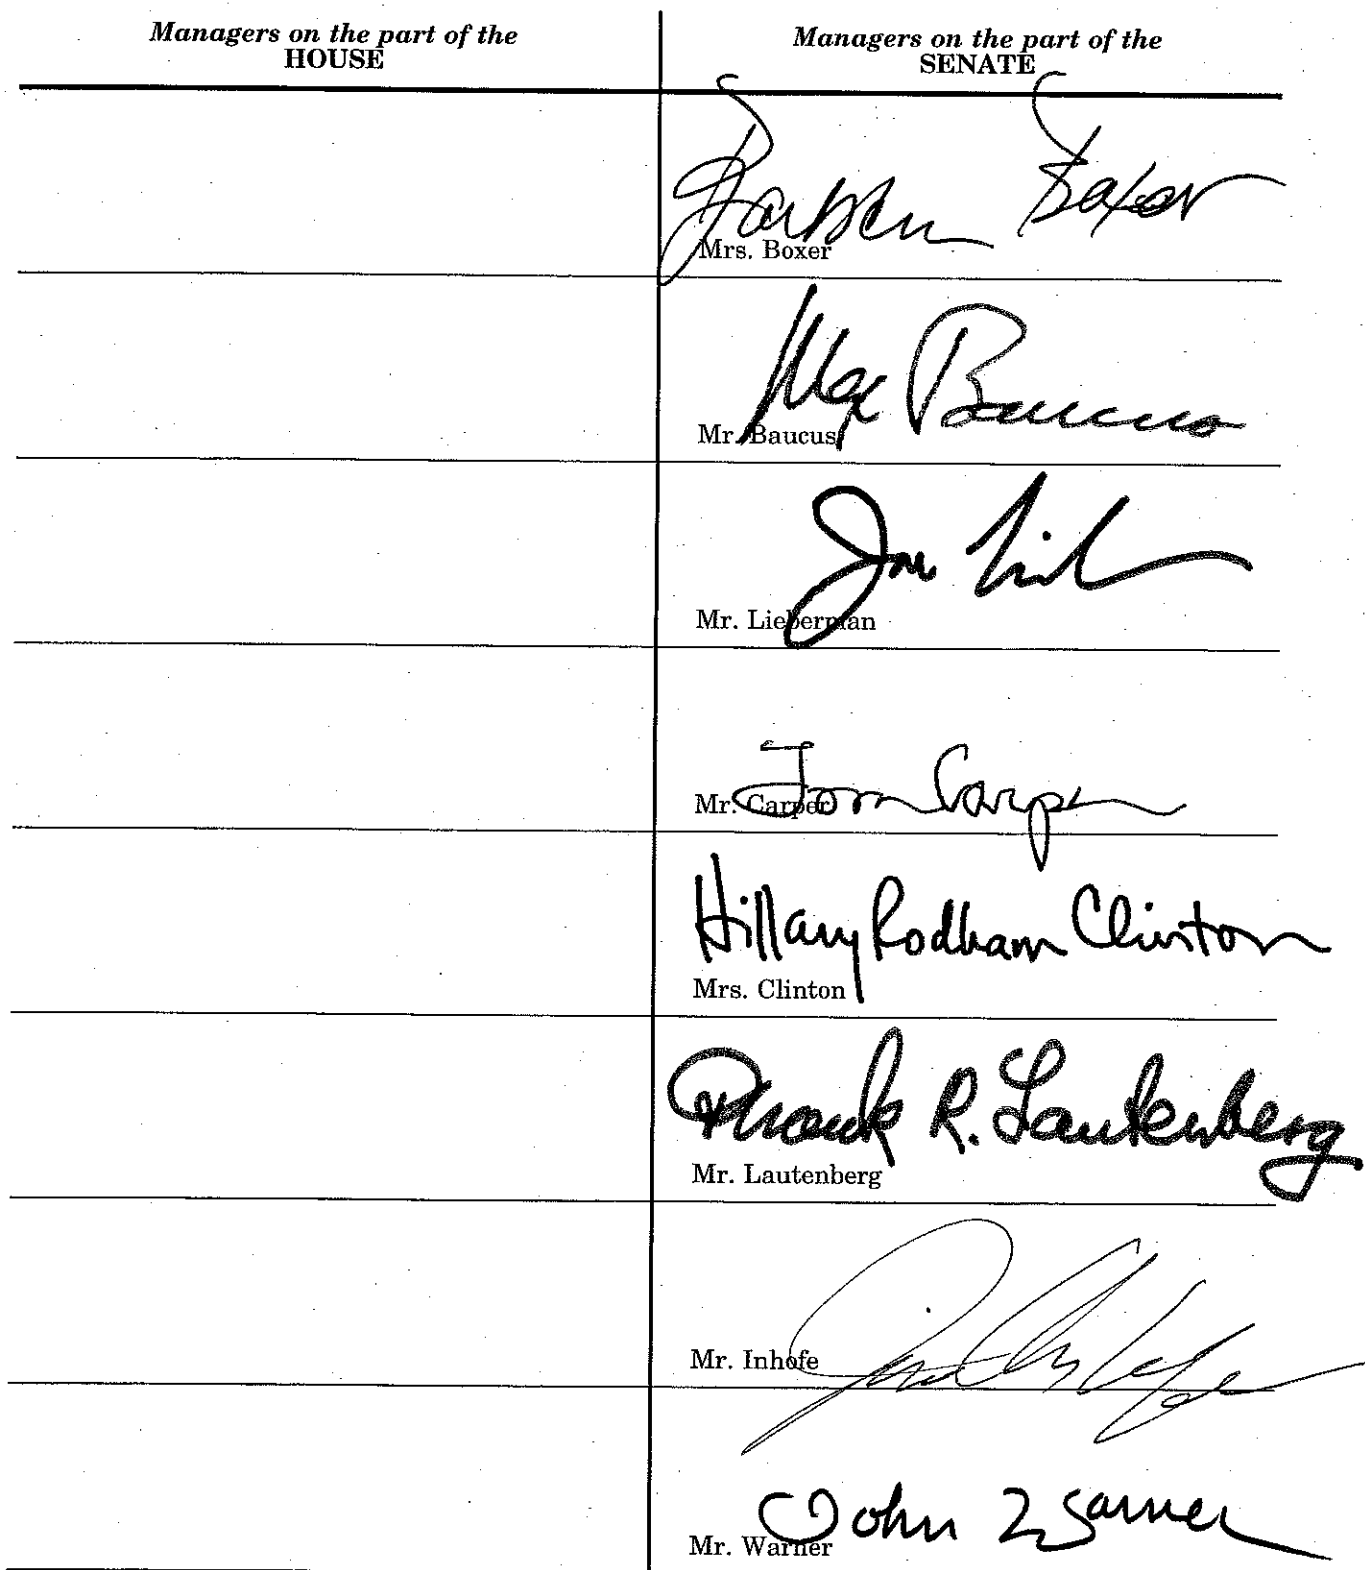 Managers on the part of the
HOUSE
Managers on the part of the
SENATE
Barbara Boxer
Mrs. Boxer
Max Baucus
Mr. Baucus
Joe
Mr. Lieberman
Tom Carper
Mr. Carper
Hillary Rodham Clinton
Mrs. Clinton
Frank R. Lautenberg
Mr. Lautenberg
Mr. Inhofe
John Warner
Mr. Warner